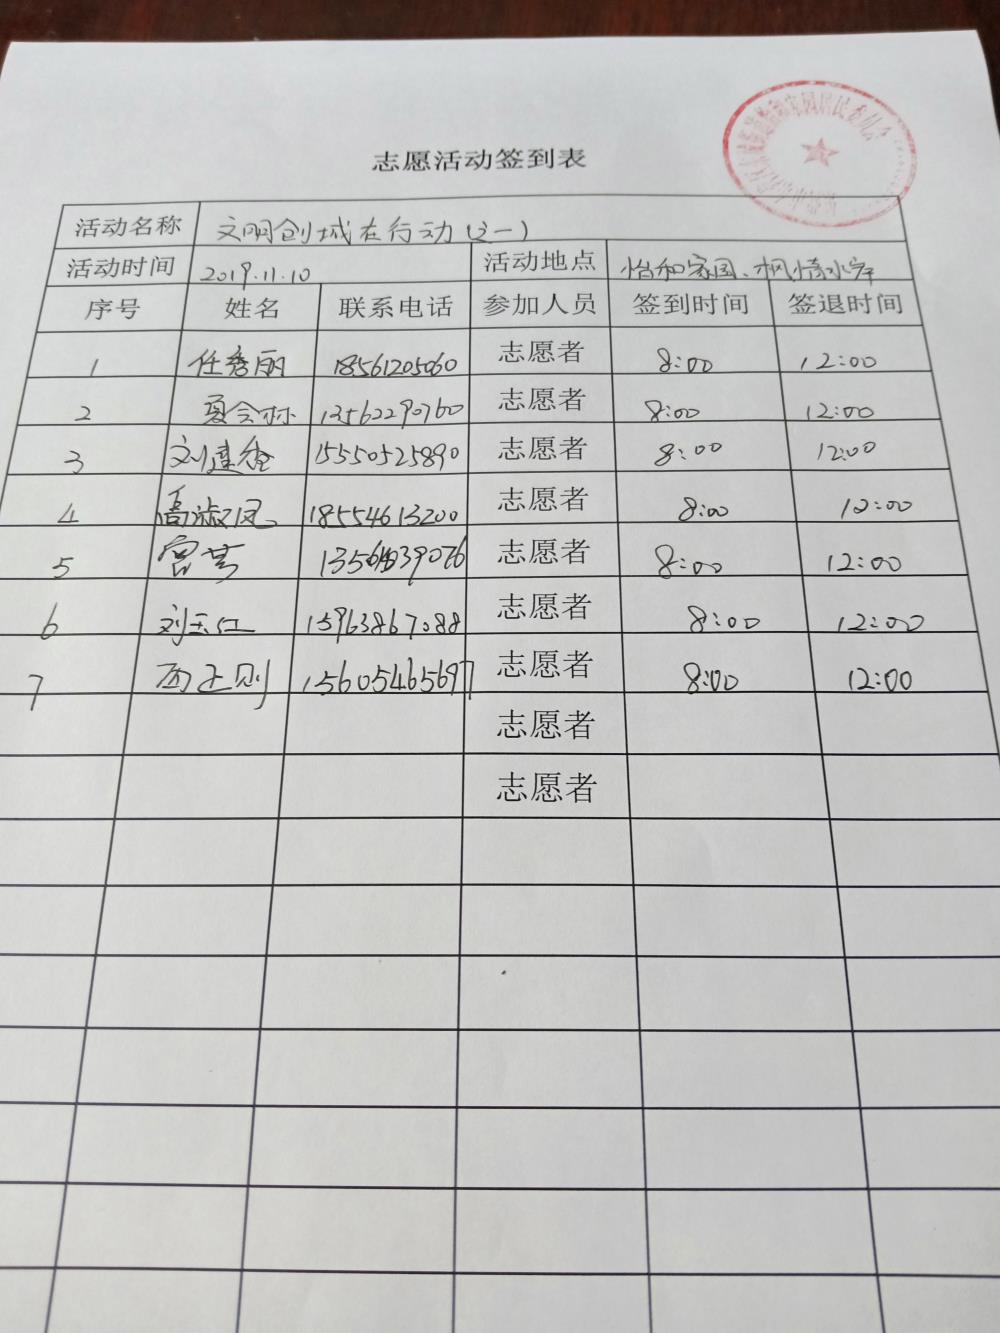 志愿活动签到表
活动名称 文明创城在行动(之一)
活动时间 2019.11.10 活动地点 怡和家园、枫情水岸
序号 姓名 联系电话 参加人员 签到时间 签退时间
1 任秀丽 18561205060 志愿者 8:00 12:00
2 夏会林 13562290760 志愿者 8:00 12:00
3 刘建 15550525890 志愿者 8:00 12:00
4 高淑凤 18554613200 志愿者 8:00 12:00
5 志愿者 8:00 12:00
6 刘玉江 15963867088 志愿者 8:00 12:00
7 15605465697 志愿者 8:00 12:00
志愿者
志愿者
家园居民委员会